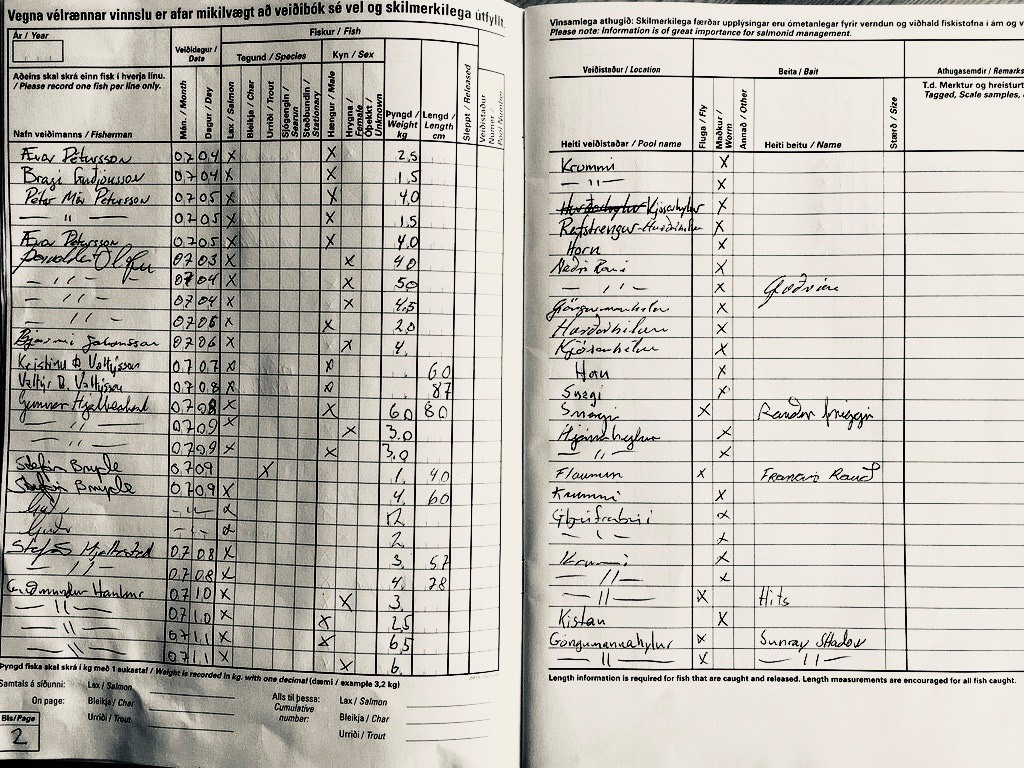 Vegna vélrænnar vinnslu er afar mikilvægt að veiðibók sé vel og skilmerkilega útfyllt.
Ár / Year
Aðeins skal skrá einn fisk í hverja línu.
/ Please record one fish per line only.
Nafn veiðimanns / Fisherman
Veiðidagur / Date
Mán. / Month
Dagur / Day
Fiskur / Fish
Tegund / Species
Lax / Salmon
Bleikja / Char
Urriði / Trout
Sjógengin / Searun
Staðbundin / Stationary
Kyn / Sex
Hængur / Male
Hrygna / Female
Óþekkt / Unknown
Þyngd / Weight kg
Lengd / Length cm
Sleppt / Released
Veiðistaður Númer / Pool Number
Ævar Pétursson 07 04 X X 2,5
Bragi Guðjónsson 07 04 X X 1,5
Pétur Már Pétursson 07 05 X X 4,0
— " — 07 05 X X 1,5
Ævar Pétursson 07 05 X X 4,0
07 03 X X 4 0
— " — 07 04 X X 5 0
— " — 07 04 X X 4,5
— " — 07 05 X X 2,0
Johannsson 07 06 X X 4,
Valtýsson 07 07 X X 60
Valtýr Valtýsson 07 08 X X 87
Gunnar Hjaltested 07 08 X X 6 0 80
— " — 07 09 X X 3,0
— " — 07 09 X X 3,0
Stefán 07 09 X 1, 40
Stefán 07 09 X 4, 60
— " —
— " — 2
Stefán Hjaltested 07 08 X 3, 57
— " — 07 08 X 4, 78
Guðmundur Haukur 07 10 X X 3,
— " — 07 10 X X 2,5
— " — 07 11 X X 6,5
— " — 07 11 X X 6,
Þyngd fiska skal skrá í kg með 1 aukastaf / Weight is recorded in kg. with one decimal (dæmi / example 3,2 kg)
Samtals á síðunni:
On page:
Lax / Salmon
Bleikja / Char
Urriði / Trout
Alls til þessa:
Cumulative number:
Lax / Salmon
Bleikja / Char
Urriði / Trout
Bls/Page
2
Vinsamlega athugið: Skilmerkilega færðar upplýsingar eru ómetanlegar fyrir verndun og viðhald fiskistofna í ám og v
Please note: Information is of great importance for salmonid management.
Veiðistaður / Location
Heiti veiðistaðar / Pool name
Beita / Bait
Fluga / Fly
Maðkur / Worm
Annað / Other
Heiti beitu / Name
Stærð / Size
Athugasemdir / Remarks
T.d. Merktur og hreisturt
Tagged, Scale samples,
Krummi X
— " — X
Kjósarhylur X
Refstrengur X
Horn X
Neðri X
— " — X
X
X
X
Horn X
Snagi X
Snagi X Rauður
X
— " — X
Flauman X Frances Rauð
Krummi X
X
— " — X
Krummi X
— " — X
— " — X Hits
Kistan X
Göngumannahylur X Sunray Shadow
— " — X — " —
Length information is required for fish that are caught and released. Length measurements are encouraged for all fish caught.